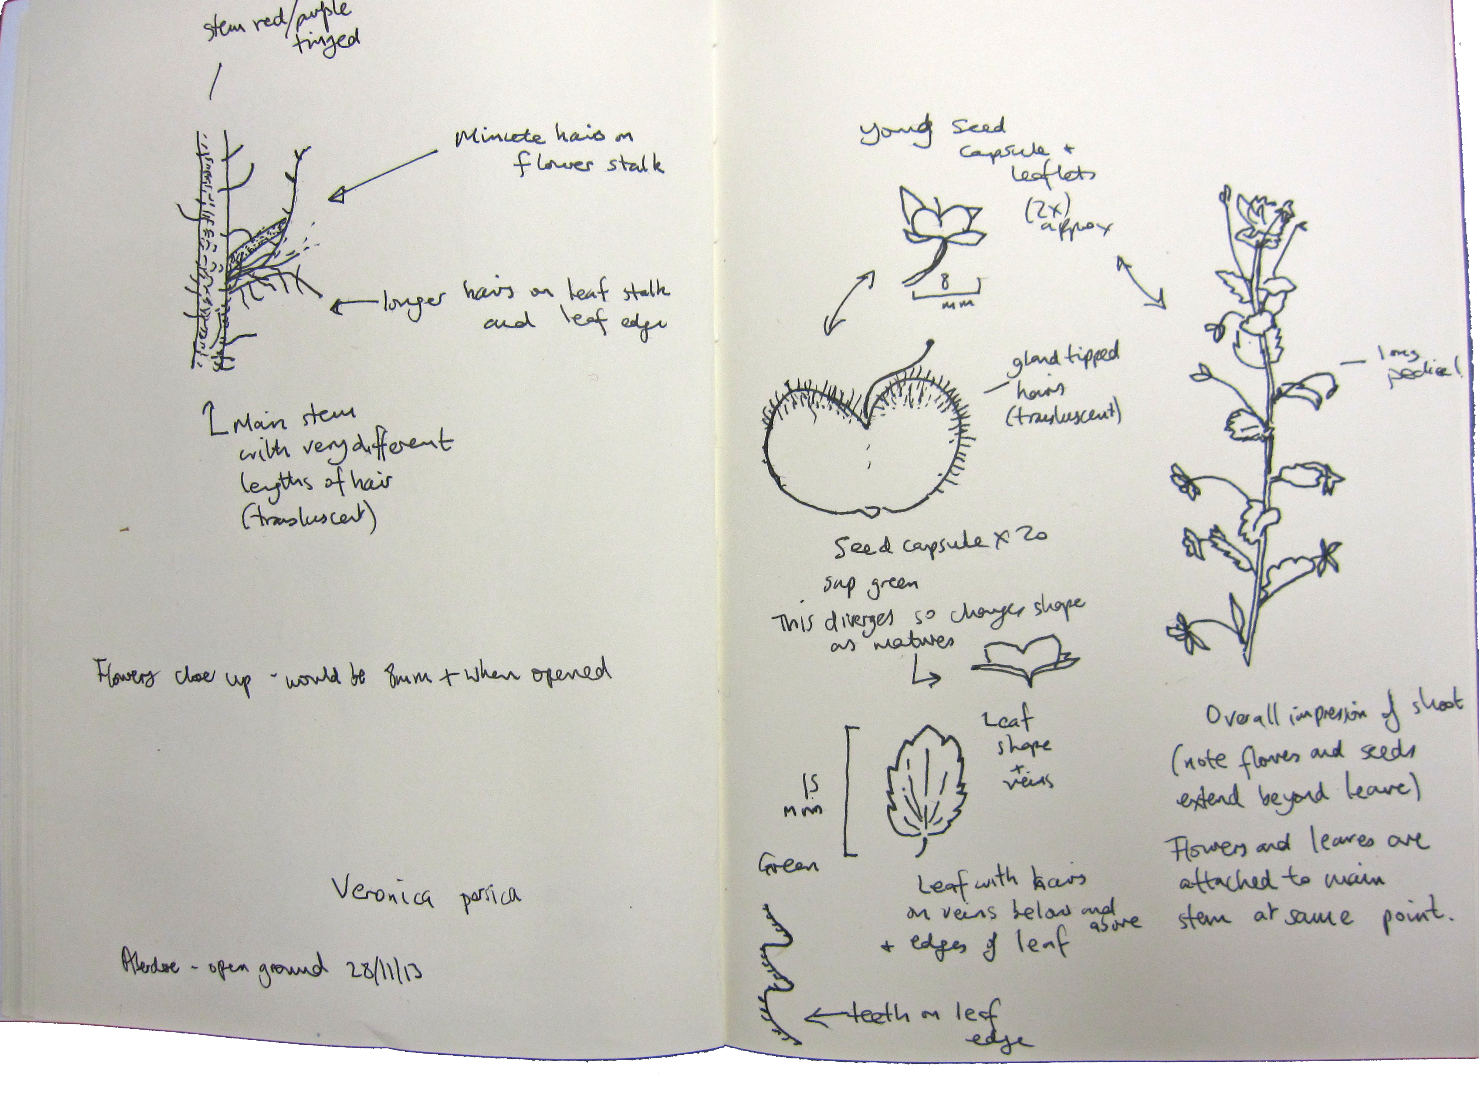 stem red/purple
tinged
Minute hairs on
flower stalk
longer hairs on leaf stalk
and leaf edge
Main stem
with very different
lengths of hair
(transluscent)
Flowers close up - would be 8mm + when opened
Veronica persica
- open ground 28/11/13
young seed
capsule +
leaflets
(2x)
approx
8
mm
gland tipped
hairs
(transluscent)
long
pedicel
Seed capsule x 20
sap green
This diverges so changes shape
as matures
Leaf
shape
+
veins
15
mm
Green
Leaf with hairs
on veins below and
above
+ edges of leaf
teeth on leaf
edge
Overall impression of shoot
(note flowers and seeds
extend beyond leave)
Flowers and leaves are
attached to main
stem at same point.